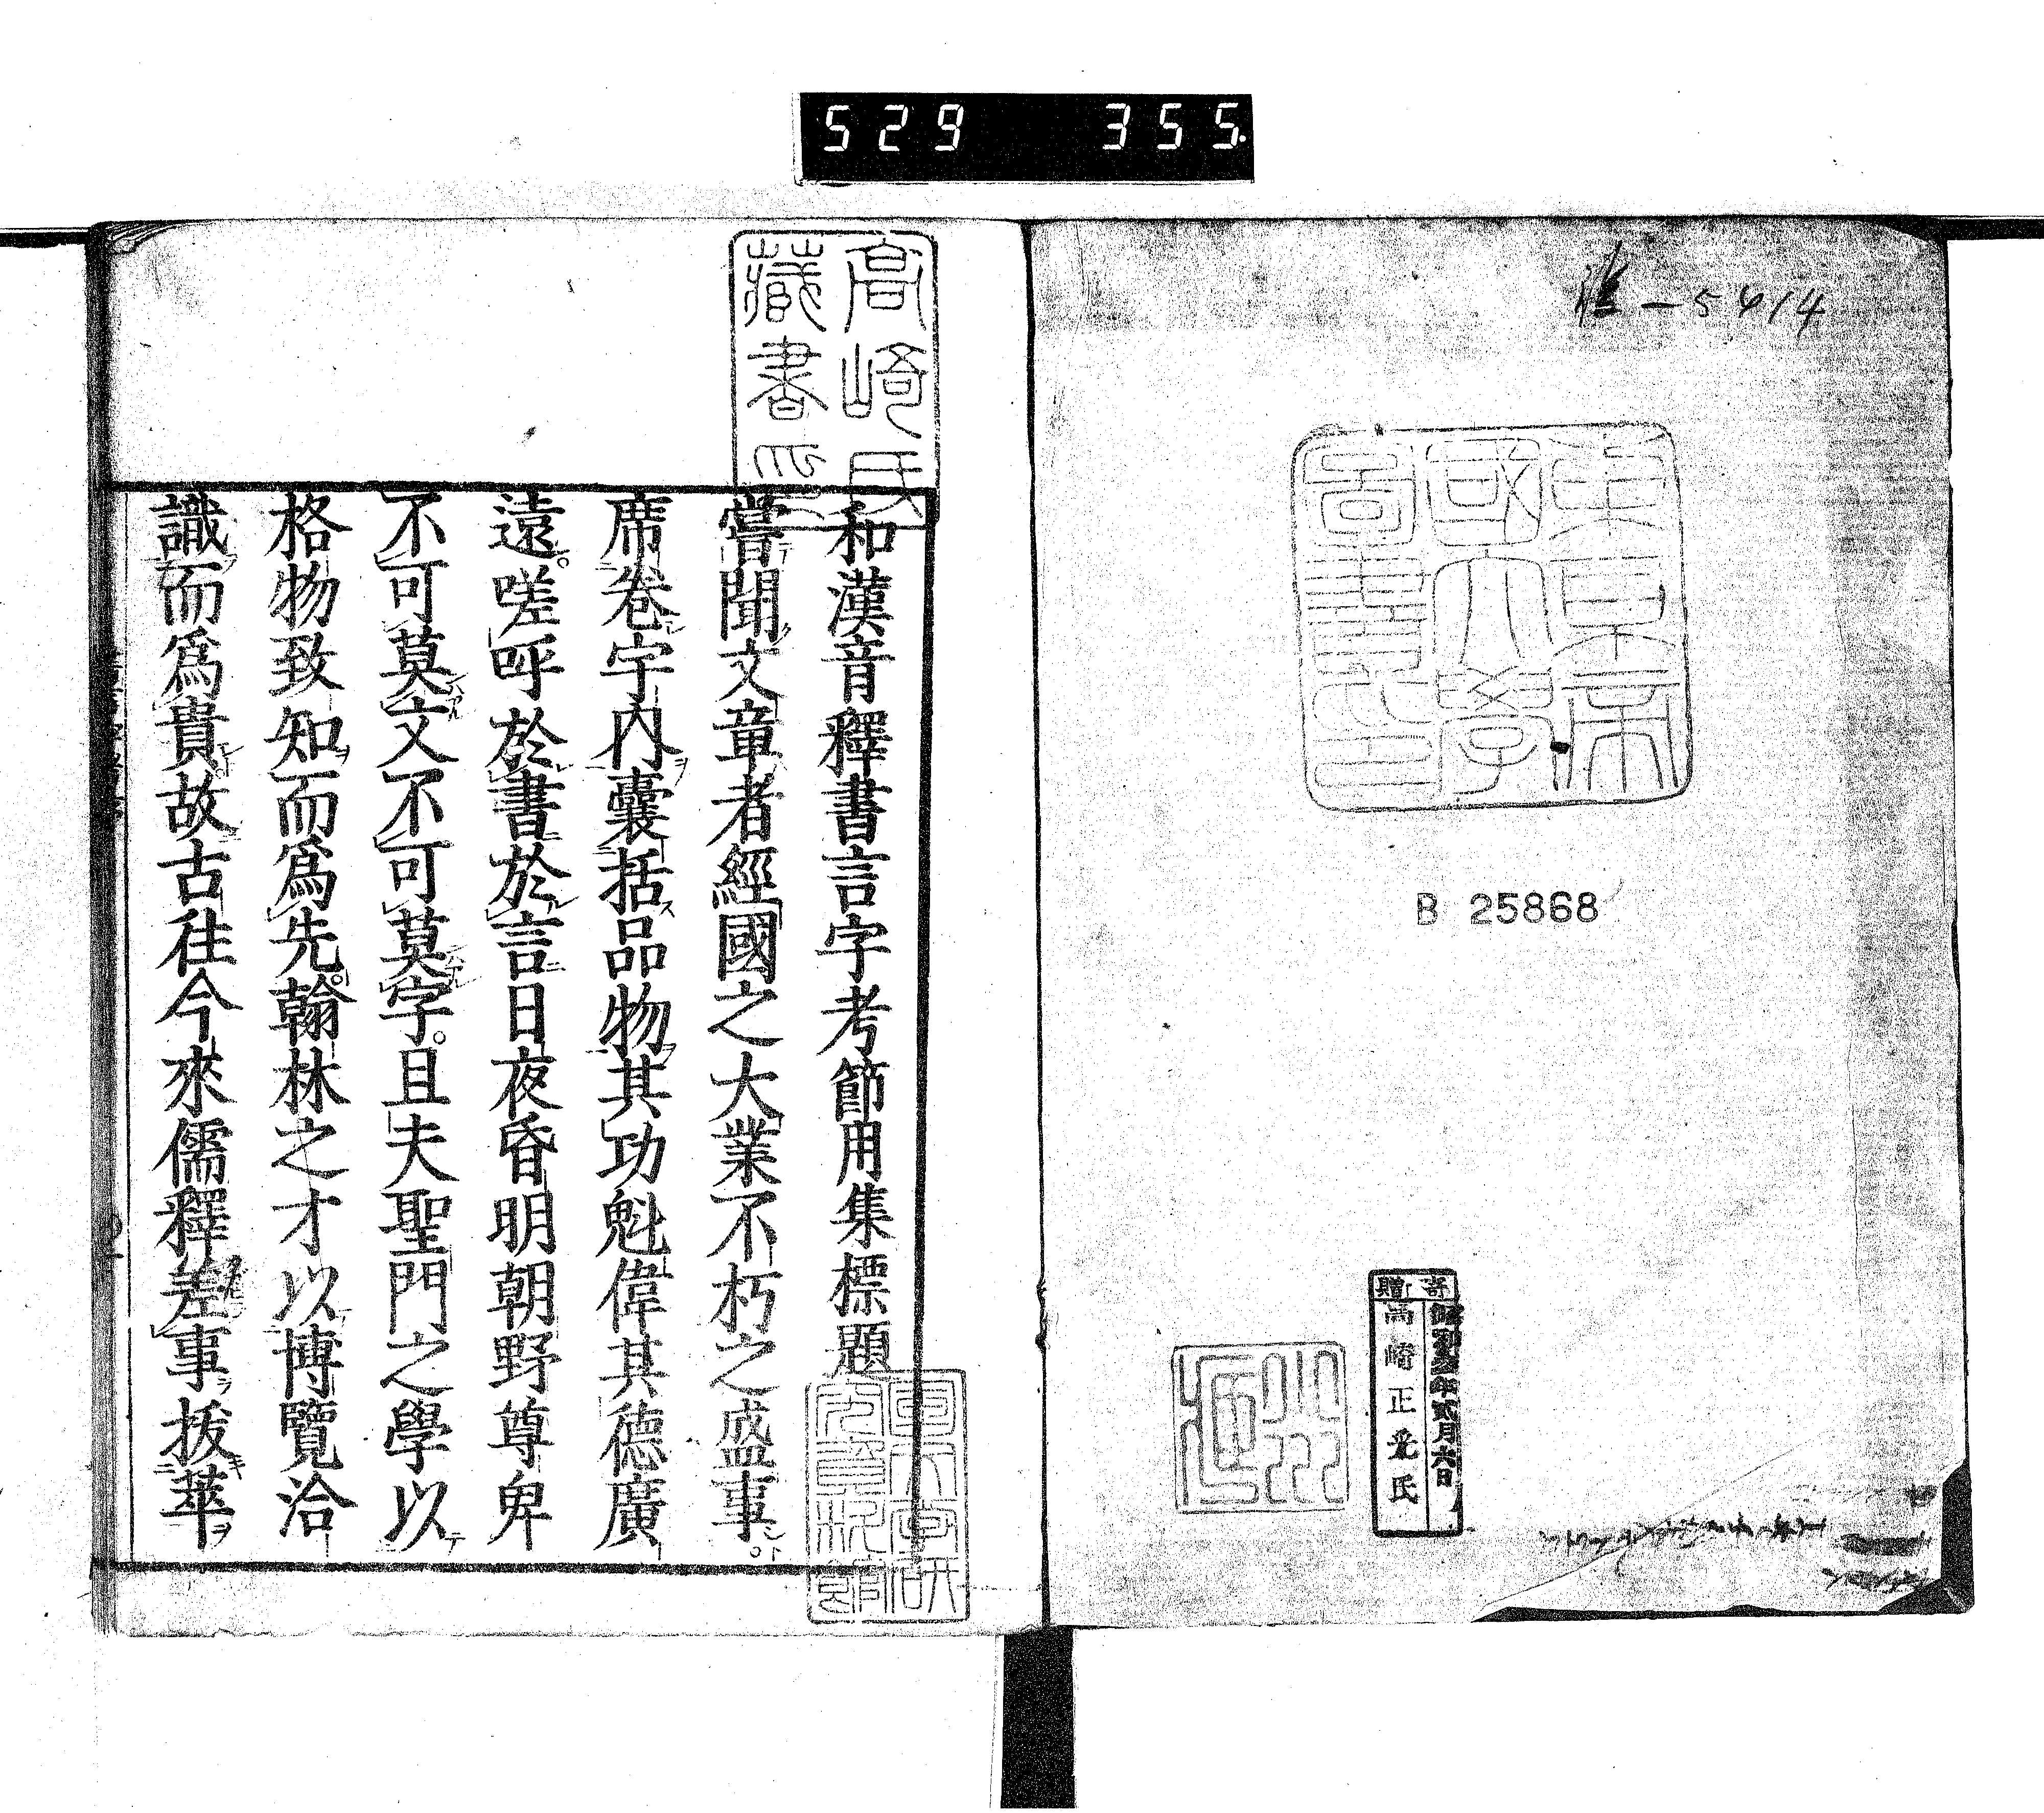 529 355
雅—5414
東京帝
國大學
圖書印
B 25868
寄贈
昭和 年貳月六日
高﨑正 氏
高﨑氏
藏書印
和漢音釋書言字考節用集標題
嘗聞文章者經國之大業不朽之盛事。
席卷宇內囊括品物其功魁偉其德廣
遠。嗟呼於書於言日夜昏明朝野尊卑
不可莫文不可莫字。且夫聖門之學以
格物致知而爲先。翰林之才以博覽洽
識而爲貴。故古往今來儒釋差事拔萃